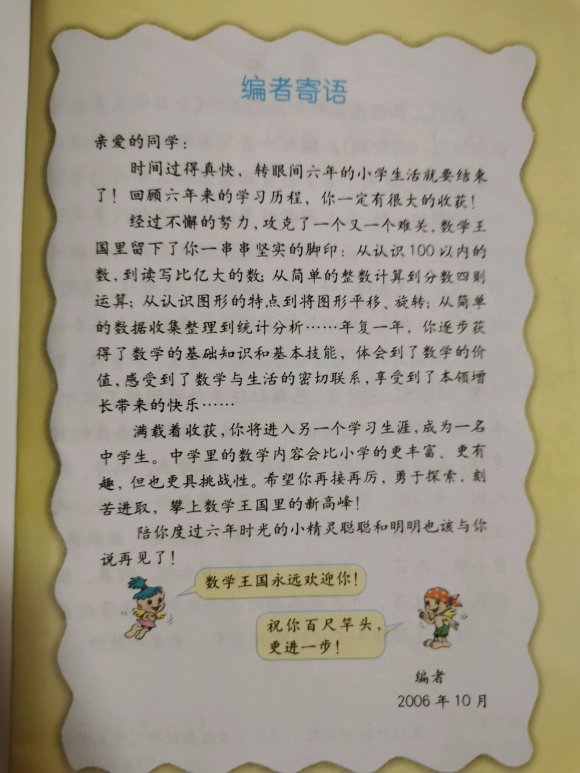 编者寄语
亲爱的同学：
时间过得真快，转眼间六年的小学生活就要结束
了！回顾六年来的学习历程，你一定有很大的收获！
经过不懈的努力，攻克了一个又一个难关，数学王
国里留下了你一串串坚实的脚印：从认识100以内的
数、到读写比亿大的数；从简单的整数计算到分数四则
运算；从认识图形的特点到将图形平移、旋转；从简单
的数据收集整理到统计分析……年复一年，你逐步获
得了数学的基础知识和基本技能，体会到了数学的价
值，感受到了数学与生活的密切联系，享受到了本领增
长带来的快乐……
满载着收获，你将进入另一个学习生涯，成为一名
中学生。中学里的数学内容会比小学的更丰富、更有
趣，但也更具挑战性。希望你再接再厉，勇于探索，刻
苦进取，攀上数学王国里的新高峰！
陪你度过六年时光的小精灵聪聪和明明也该与你
说再见了！
数学王国永远欢迎你！
祝你百尺竿头，
更进一步！
编者
2006年10月